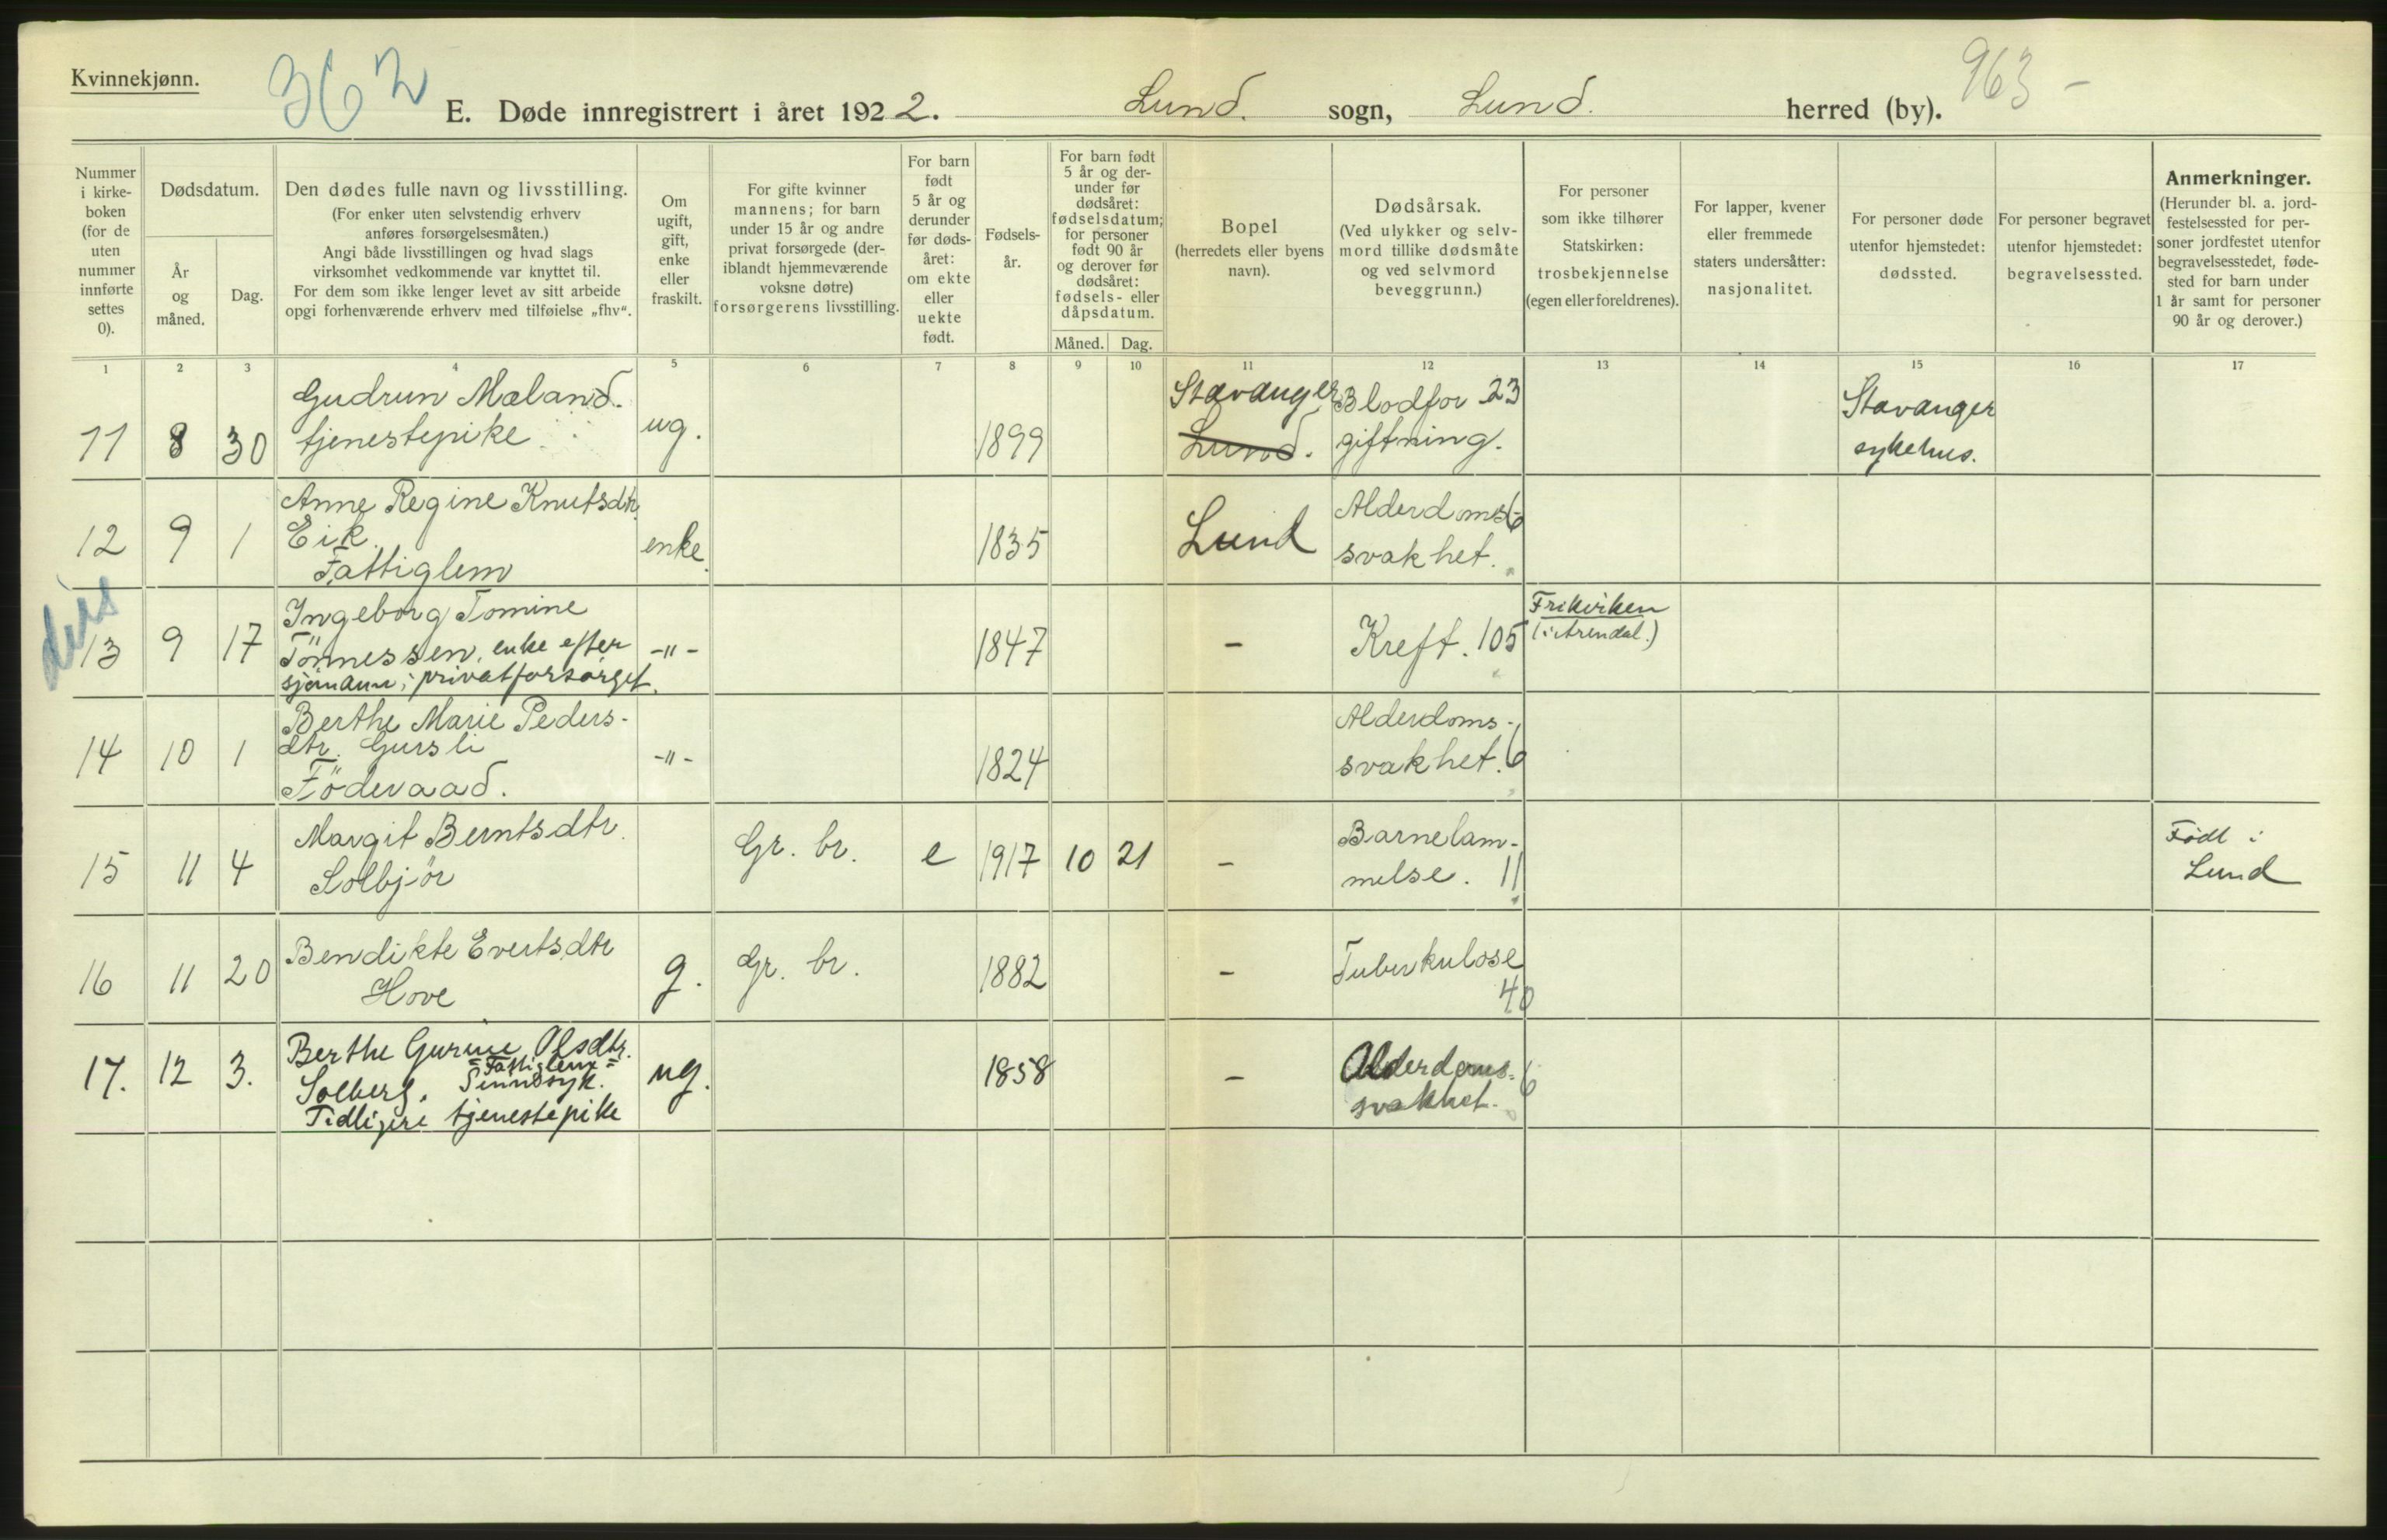 Kvinnekjønn.
362
963 -
E. Døde innregistrert i året 1922. Lund. sogn, Lund. herred (by).
Nummer i kirke- boken (for de uten nummer innførte settes 0).
Dødsdatum.
År og måned.
Dag.
Den dødes fulle navn og livsstilling.
(For enker uten selvstendig erhverv
anføres forsørgelsesmåten.)
Angi både livsstillingen og hvad slags
virksomhet vedkommende var knyttet til.
For dem som ikke lenger levet av sitt arbeide
opgi forhenværende erhverv med tilføielse „fhv“.
Om ugift, gift, enke eller fraskilt.
For gifte kvinner
mannens; for barn
under 15 år og andre
privat forsørgede (der-
iblandt hjemmeværende
voksne døtre)
forsørgerens livsstilling.
For barn født 5 år og derunder før døds- året: om ekte eller uekte født.
Fødsels- år.
For barn født
5 år og der-
under før
dødsåret:
fødselsdatum;
for personer
født 90 år
og derover før
dødsåret:
fødsels- eller
dåpsdatum.
Måned. Dag.
Bopel
(herredets eller byens
navn).
Dødsårsak.
(Ved ulykker og selv-
mord tillike dødsmåte
og ved selvmord
beveggrunn.)
For personer
som ikke tilhører
Statskirken:
trosbekjennelse
(egen eller foreldrenes).
For lapper, kvener
eller fremmede
staters undersåtter:
nasjonalitet.
For personer døde
utenfor hjemstedet:
dødssted.
For personer begravet
utenfor hjemstedet:
begravelsessted.
Anmerkninger.
(Herunder bl. a. jord-
festelsessted for per-
soner jordfestet utenfor
begravelsesstedet, føde-
sted for barn under
1 år samt for personer
90 år og derover.)
1 2 3 4 5 6 7 8 9 10 11 12 13 14 15 16 17
11 8 30 Gudrun Mæland. tjenestepike ug. 1899 Stavanger Lund. Blodfor 23 giftning. Stavanger sykehus.
12 9 1 Anne Regine Knutsdtr. Eik. Fattiglem enke. 1835 Lund Alderdoms- 6 svakhet.
13 9 17 Ingeborg Tomine Tönnessen, enke efter sjömann; privatforsörget. -"- 1847 - Kreft. 105 Frikirken (i Arendal.)
14 10 1 Berthe Marie Peders- dtr. Gursli Föderaad. -"- 1824 Alderdoms- svakhet. 6
15 11 4 Margit Berntsdtr. Solbjör Gr. br. e 1917 10 21 - Barnelam- melse. 11 Født i Lund
16 11 20 Bendikte Evertsdtr Hove g. Gr. br. 1882 - Tuberkulose 40
17. 12 3. Berthe Gurine Olsdtr. = Fattiglem = Solberg. Sinnssyk. Tidligere tjenestepike ug. 1858 - Alderdoms- 6 svakhet.